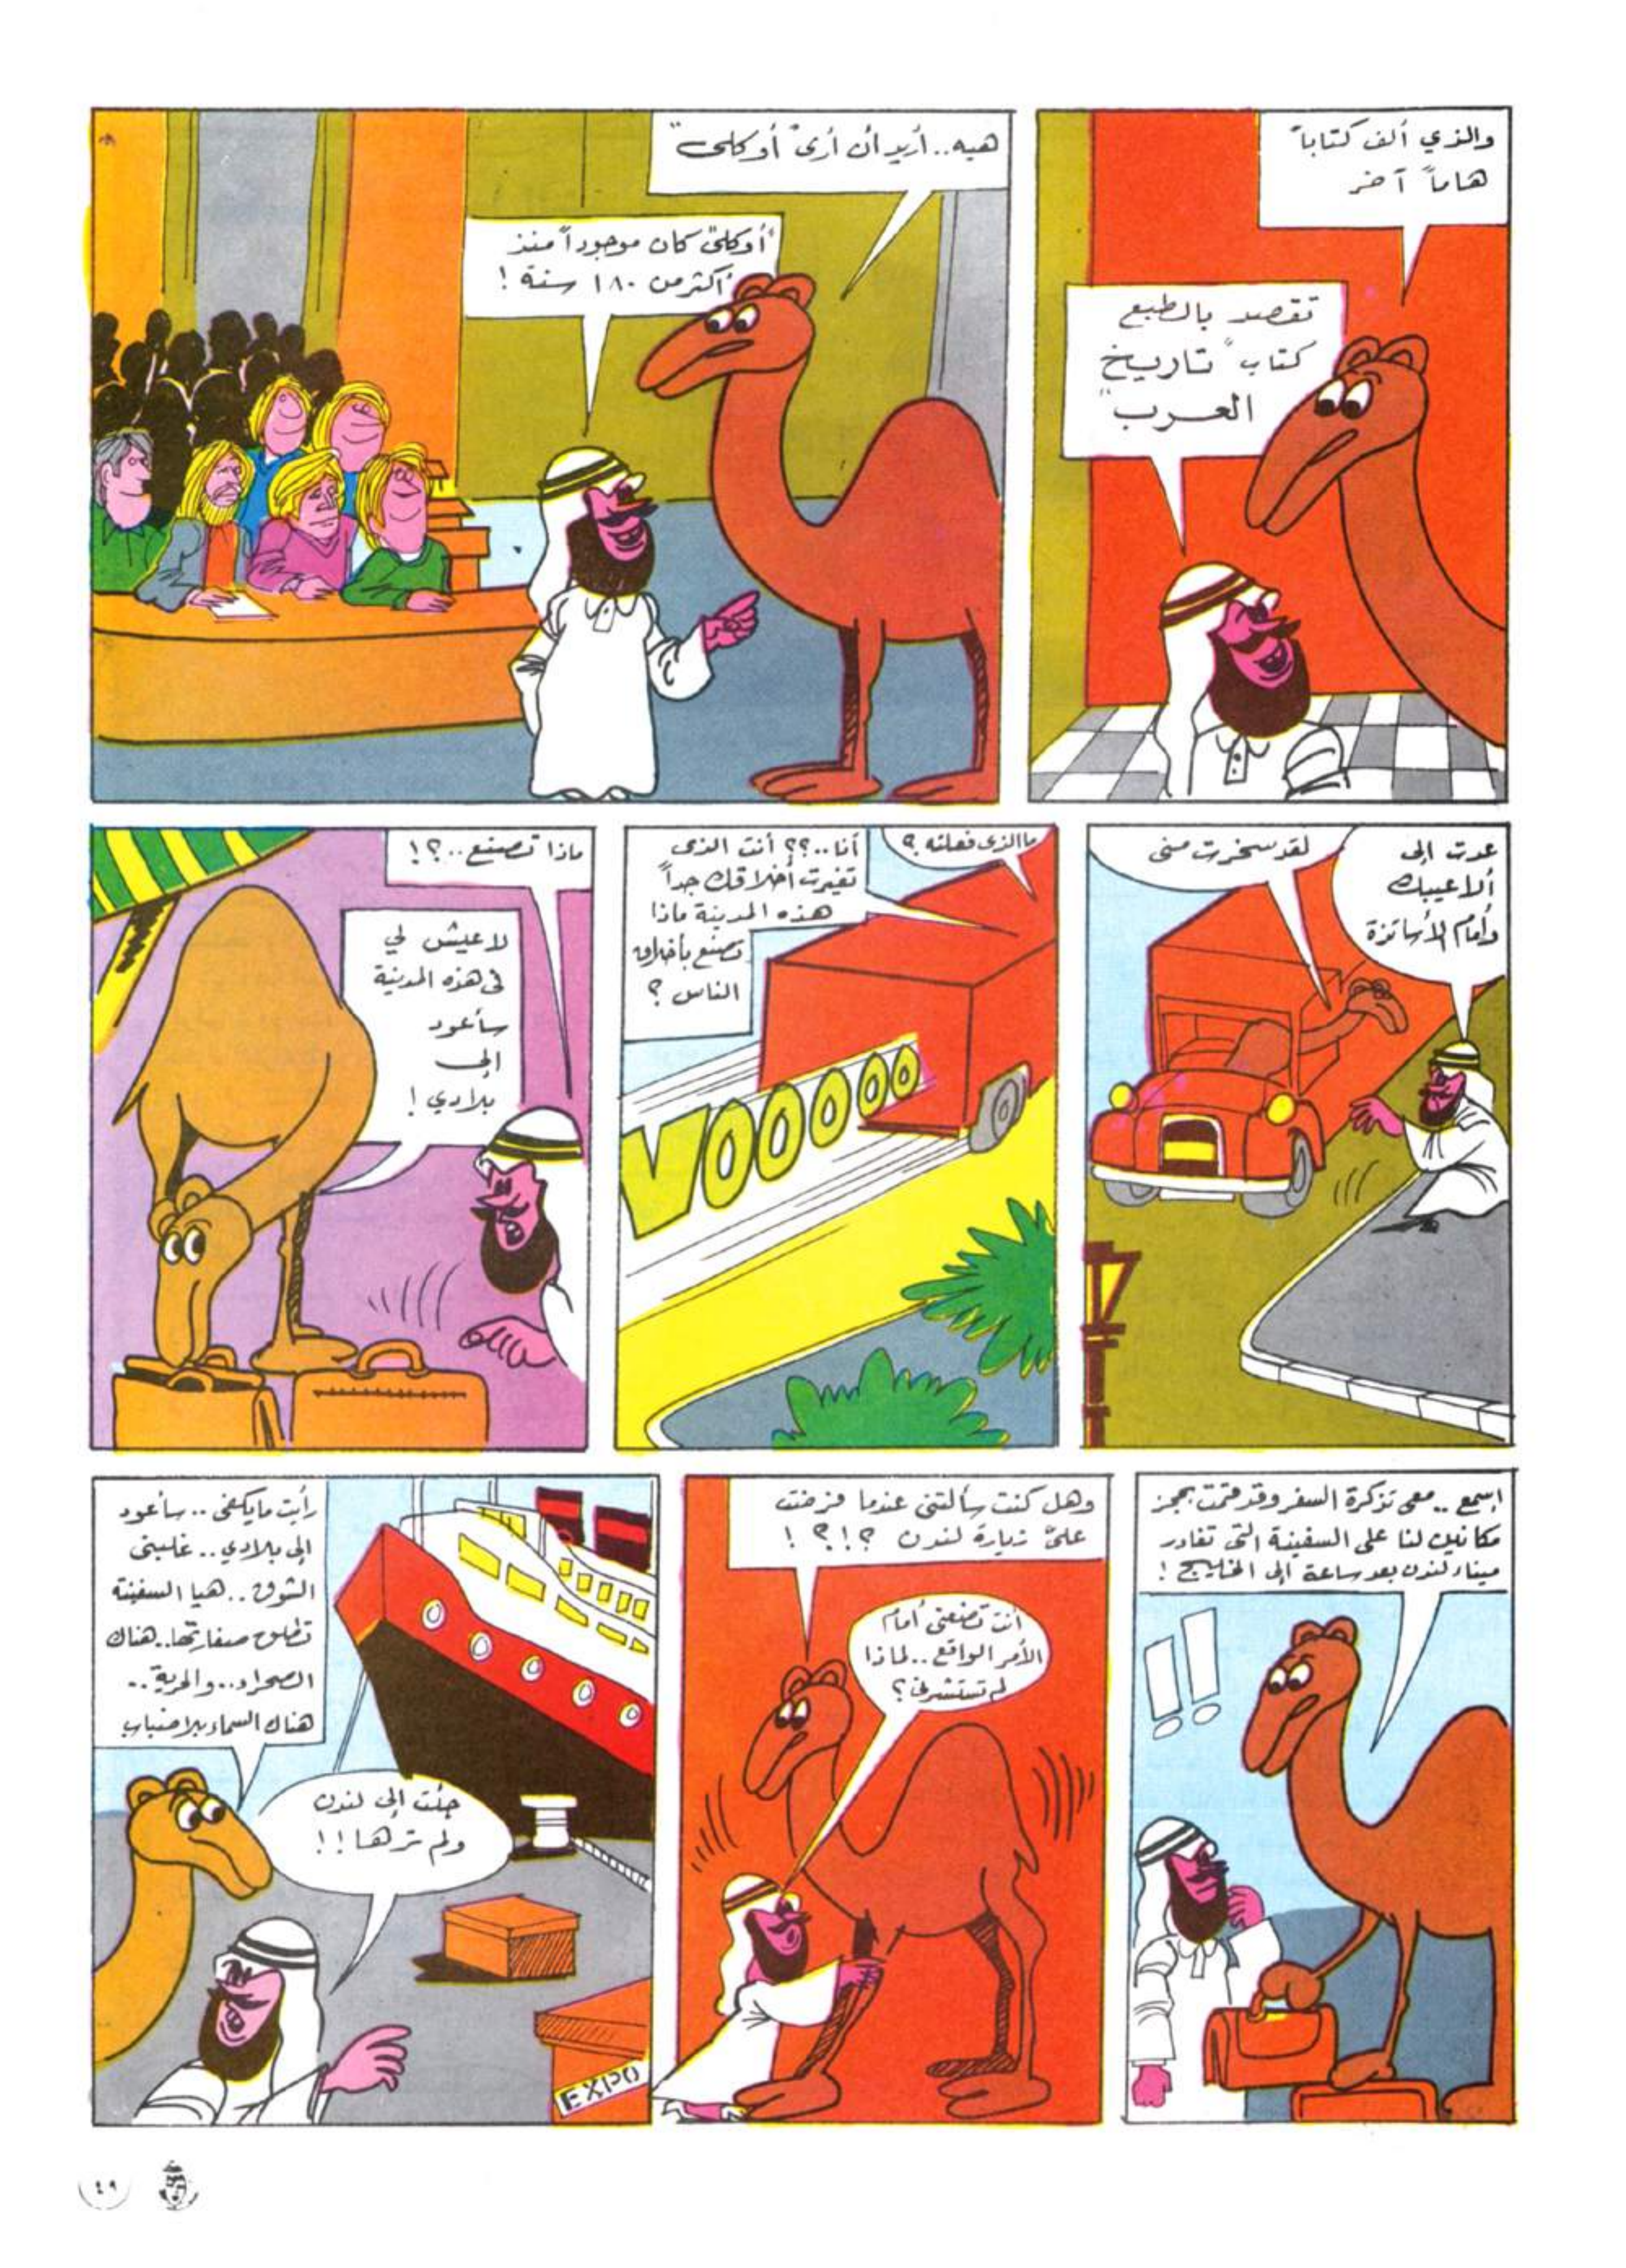 والذي ألف كتاباً
هاماً آخر
تقصد بالطبع
كتاب "تاريخ
العرب"
هيه.. أريد أن أرى "أوكلى"
"أوكلى" كان موجوداً منذ
أكثر من ١٨٠ سنة !
عدت إلى
ألاعيبك
وأمام الأساتذة
لقد سخرت مني
ما الذي فعلته ؟
أنا..؟؟ أنت الذى
تغيرت أخلاقك جداً
هذه المدينة ماذا
تصنع بأخلاق
الناس ؟
VOOOOOO
ماذا تصنع..؟!
لا عيش لي
في هذه المدينة
سأعود
إلى
بلادي !
إسمع .. معى تذكرة السفر وقد قمت بحجز
مكانين لنا على السفينة التى تغادر
ميناء لندن بعد ساعة إلى الخليج !
!!
وهل كنت سألتنى عندما فرضت
علىّ زيارة لندن ؟!؟ !
أنت تضعنى أمام
الأمر الواقع .. لماذا
لم تستشرنى ؟
رأيت مايكفى .. سأعود
إلى بلادي .. غلبنى
الشوق .. هيا السفينة
تطلق صفارتها.. هناك
الصحراء.. والحرية ..
هناك السماء بلا ضباب
جئت إلى لندن
ولم ترها !!
EXPO
٤٩